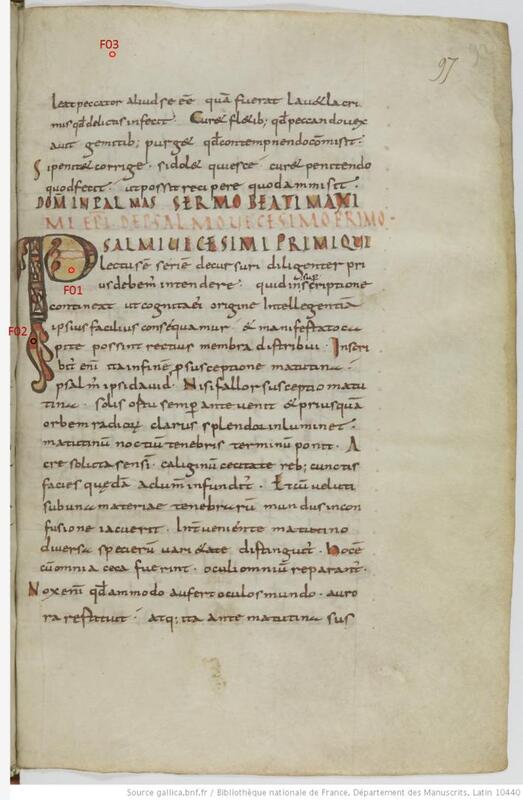 F03
97
leat peccator aliud se eē quā fuerat lauet lacri
mis qd delictis infecit · Curet fletib; qd peccando uex
auit gemitib; purget qd contempnendo cōmisit ·
Si penitet corrige · si dolet quiesce · curet penitendo
quod fecit · ut possit recipere quod ammisit ·
DOM IN PALMAS SERMO BEATI MAXI
MI EPI DE PSALMO UECESIMO PRIMO
PSALMI UECESIMI PRIMI QUI
lectus ē seriē decursuri diligenter pri
us debem intendere · quid inscriptione
super
F01
contineat ut cognita ei origine Intellegentiā
ipsius facilius consequamur · & manifestato ca
F02
pite possint rectius membra distribui · Inscri
bit eni ita in fine p susceptione matutina ·
psalm ipsi dauid · Nisi fallor susceptio matu
tina · solis ortu semp ante uenit & priusquā
orbem radior clarus splendor inluminet ·
matutinū noctiū tenebris terminū ponit · A
cre solicta sensi · caliginū cecitate reb; cunctis
facies quedā ad um infundit · Et cū veluti
sub una materiae tenebrarū mundus in con
fusione iacuerit · Interueniente matutino
diuersa specierū uarietate distinguit · hoc ē
cū omnia ceca fuerint · oculi omniū reparant ·
Nox eni qd ammodo aufert oculos mundo · auro
ra restituit · atq; ita ante matutina sus
Source gallica.bnf.fr / Bibliothèque nationale de France. Département des Manuscrits. Latin 10440